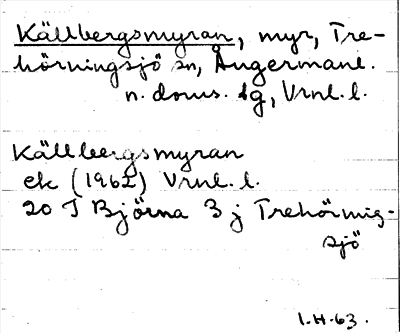 Källbergsmyran, myr, Tre-
hörningsjö sn, Ångermanl.
n. dorus. lg, Vrnl. l.
Källbergsmyran
ek (1962) Vrnl. l.
20 J Björna 3 j Trehörnig-
sjö
I.H.63.